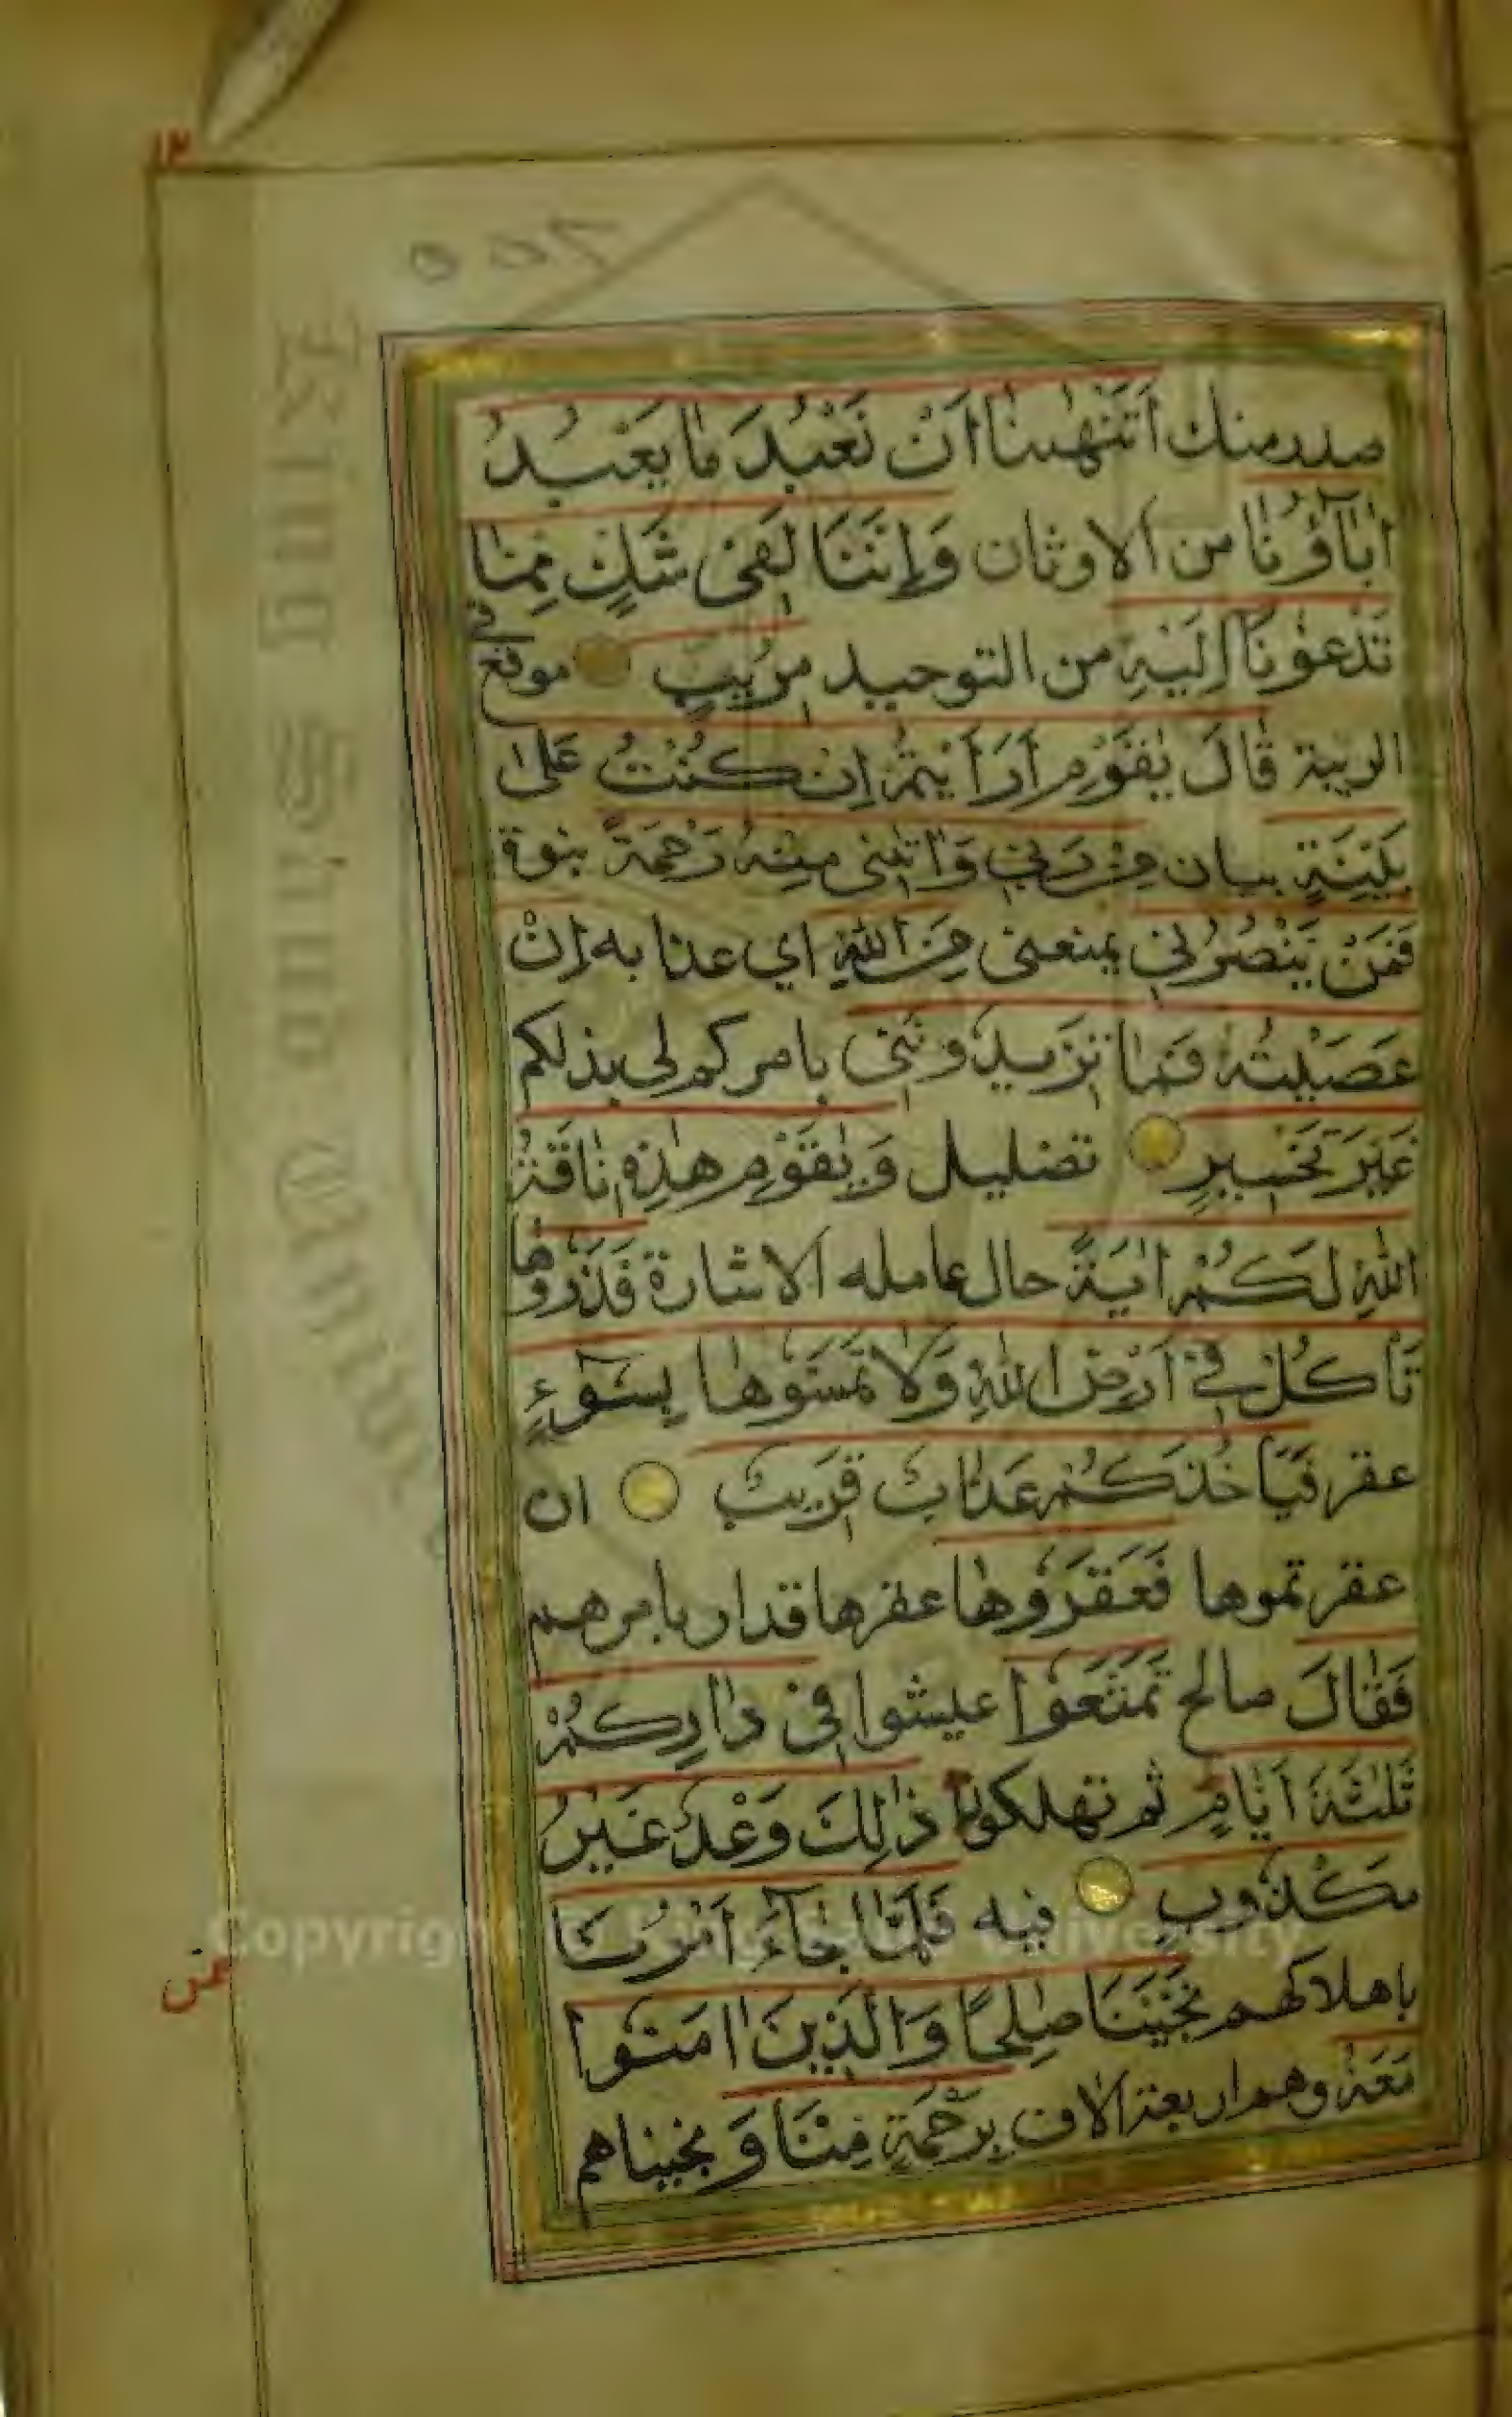 ١٢
صدر منك اَتَنْهٰىنَا اَنْ نَعْبُدَ مَا يَعْبُدُ
اٰبَآؤُنَا من الاوثان وَاِنَّنَا لَفِى شَكٍّ مِمَّا
تَدْعُونَآ اِلَيْهِ من التوحيد مُرِيبٍ موقع في
الريبة قَالَ يٰقَوْمِ اَرَاَيْتُمْ اِنْ كُنْتُ عَلٰى
بَيِّنَةٍ بيان مِنْ رَبِّي وَاٰتٰىنِى مِنْهُ رَحْمَةً نبوة
فَمَنْ يَنْصُرُنِي يمنعنى مِنَ اللّٰهِ اي عذابه اِنْ
عَصَيْتُهُ فَمَا تَزِيدُونَنِي بامركم لي بذلكم
غَيْرَ تَخْسِيرٍ تضليل وَيٰقَوْمِ هٰذِهِ نَاقَةُ
اللّٰهِ لَكُمْ اٰيَةً حال عامله الاشارة فَذَرُوهَا
تَاْكُلْ فِي اَرْضِ اللّٰهِ وَلَا تَمَسُّوهَا بِسُوٓءٍ
عقر فَيَاْخُذَكُمْ عَذَابٌ قَرِيبٌ ان
عقرتموها فَعَقَرُوهَا عقرها قدار بامرهم
فَقَالَ صالح تَمَتَّعُوا عيشوا فِي دَارِكُمْ
ثَلٰثَةَ اَيَّامٍ ثم تهلكون ذٰلِكَ وَعْدٌ غَيْرُ
مَكْذُوبٍ فيه فَلَمَّا جَآءَ اَمْرُنَا
باهلاكهم نَجَّيْنَا صٰلِحًا وَالَّذِينَ اٰمَنُوا
مَعَهُ وهم اربعة الاف بِرَحْمَةٍ مِنَّا وَ نجيناهم
Copyright © King Saud University